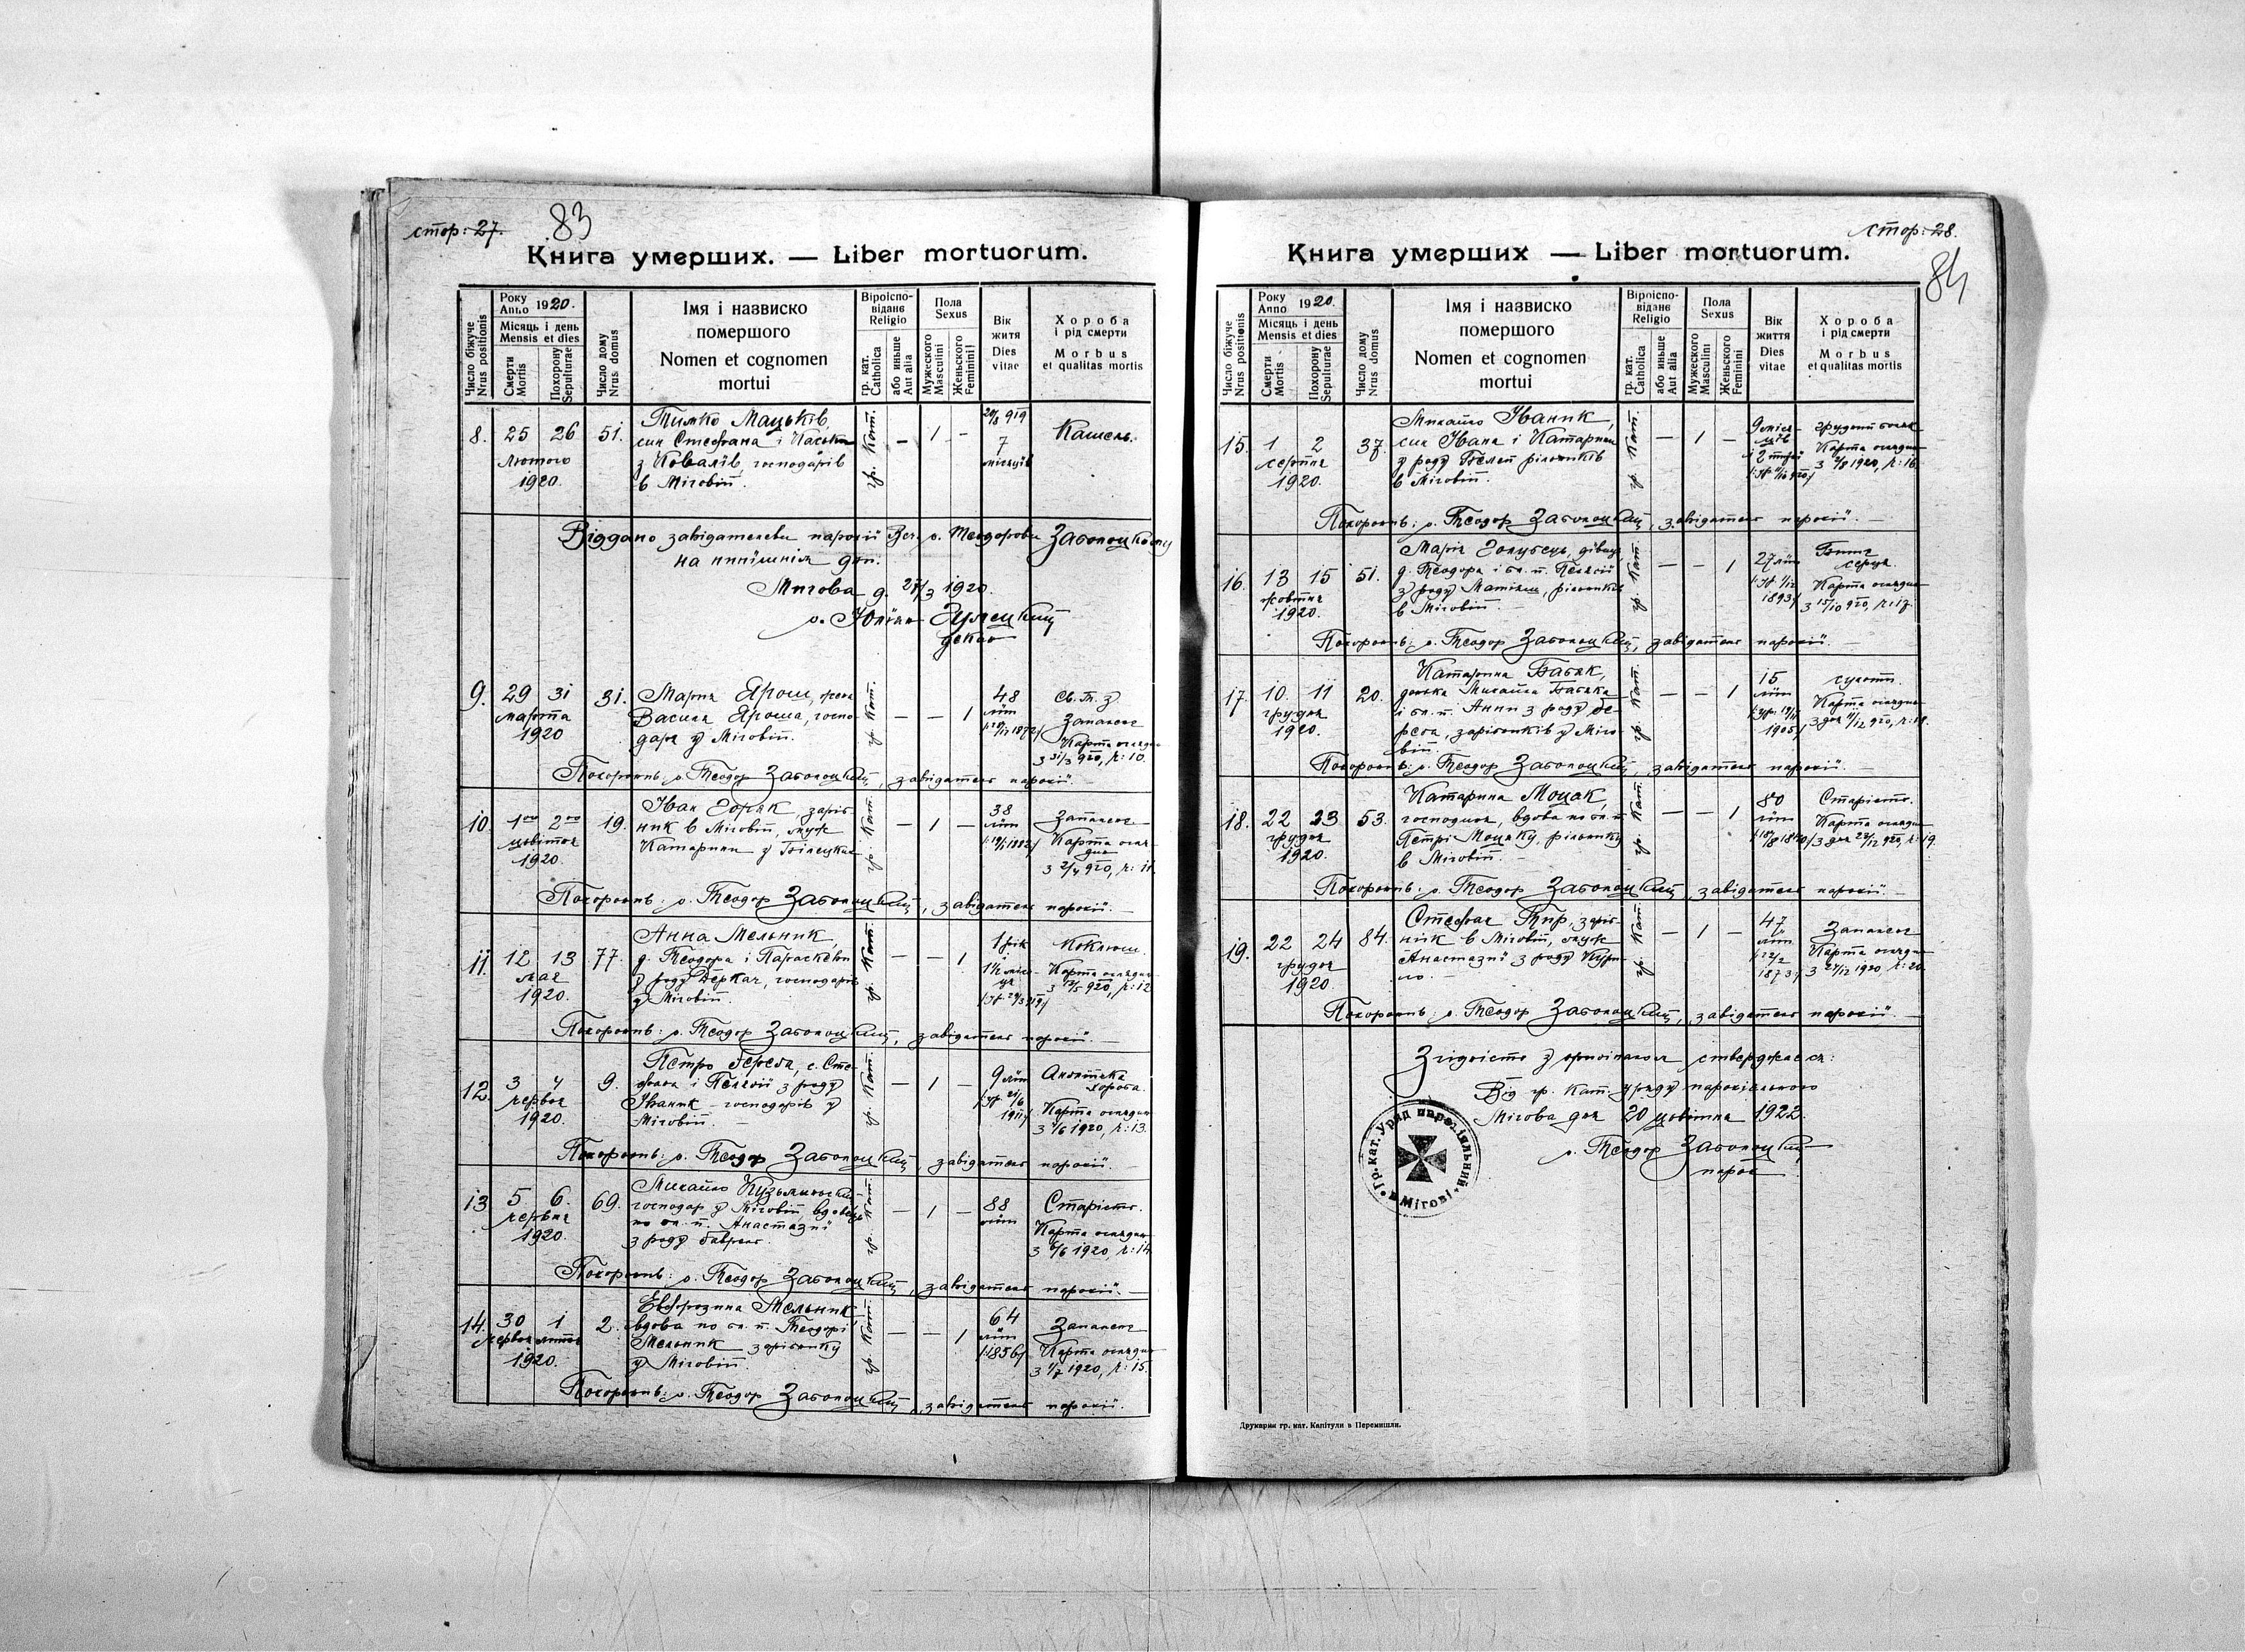 стор: 27.
83
Книга умерших. — Liber mortuorum.
Число біжуче
Nrus positionis
Року
Anno 1920.
Місяць і день
Mensis et dies
Смерти
Mortis
Похорону
Sepulturae
Число дому
Nrus domus
Імя і назвиско
помершого
Nomen et cognomen
mortui
Віроіспо-
відане
Religio
гр. кат.
Catholica
або иньше
Aut alia
Пола
Sexus
Мужеского
Masculini
Женьского
Feminini
Вік
життя
Dies
vitae
Хороба
і рід смерти
Morbus
et qualitas mortis
8. 25 26 51. Тимко Мацьків, гр. Кат. — 1 — 919 Кашель.
Лютого син Стефана і Каськи 7
1920. з Ковалів, господарів місяців
в Міговій.
Віддано завідателеви парохії Вер. о. Теодорови Заболоцкому
на нинїшнім дни.
Мигова д. 27/3 1920.
о. Юліян Гулецкий
декан
9. 29 31 31. Мария Ярош, жена гр. Кат. — — 1 48 Св. Т. з
марта Василя Яроша, госпо- літ Запаленє
1920 даря у Міговій. Карта оглядин
з 31/3 920, ч: 10.
Похоронив: о. Теодор Заболоцкий, завідатель парохії. —
10. 1го 2го 19. Іван Горяк, заріб- гр. Кат. — 1 — 38 Запаленє
цьвітня ник в Міговій, муж літ Карта огля-
1920. Катарини з Білецких дин
з 2/4 920, ч: 11.
Похоронив: о. Теодор Заболоцкий, завідатель парохії. —
11. 12 13 77. Анна Мельник, гр. Кат. — — 1 1 рік Коклюш.
мая д. Теодора і Параскевії 1½ міся- Карта оглядин
1920. з роду Деркач, господарів ця з 13/5 920, ч: 12
у Міговій.
Похоронив: о. Теодор Заболоцкий, завідатель парохії. —
12. 3 4 9. Петро Береза, с. Сте- гр. Кат. — 1 — 9 літ
червня фана і Пелягії з роду хороба.
1920. Іваник — господарів у 1911 Карта оглядин
Міговій. — з 4/6 1920, ч: 13.
Похоронив: о. Теодор Заболоцкий, завідатель парохії. —
13 5 6. 69. Михайло гр. Кат. — 1 — 88 Старість.
червня господар у Міговій, вдовець літ Карта оглядин
1920. по бл. п. Анастазиї з 6/6 1920, ч: 14
з роду Гаврель.
Похоронив: о. Теодор Заболоцкий, завідатель парохії. —
14. 30 1 2. Евфрозина Мельник гр. Кат. — — 1 64 Запаленє
червня липня вдова по бл. п. Теодорі літ Карта оглядин
1920. Мельник зарібнику /:1856:/ з 1/7 1920, ч: 15.
у Міговій.
Похоронив: о. Теодор Заболоцкий, завідатель парохії.
стор: 28.
84
Книга умерших — Liber mortuorum.
Число біжуче
Nrus positionis
Року
Anno 1920.
Місяць і день
Mensis et dies
Смерти
Mortis
Похорону
Sepulturae
Число дому
Nrus domus
Імя і назвиско
помершого
Nomen et cognomen
mortui
Віроіспо-
відане
Religio
гр. кат.
Catholica
або иньше
Aut alia
Пола
Sexus
Мужеского
Masculini
Женьского
Feminini
Вік
життя
Dies
vitae
Хороба
і рід смерти
Morbus
et qualitas mortis
15. 1 2 37. Михайло Іваник, гр. Кат. — 1 — 9 міся-
серпня син Івана і Катарини ців Карта оглядин
1920. з роду рільників з 2/8 1920, ч: 16.
в Міговій.
Похоронив: о. Теодор Заболоцкий, завідатель парохії. —
16. 13 15 51. Марія Голубець, дівиця гр. Кат. — — 1 27 літ
жовтня д. Теодора і бл. п. Пелягії серця.
1920. з роду рільників 1893 Карта оглядин
в Міговій. — з 15/10 920, ч: 17.
Похоронив: о. Теодор Заболоцкий, завідатель парохії. —
17. 10. 11 20. Катарина Бабяк, гр. Кат. — — 1 15 сухоти.
грудня донька Михайла Бабяка літ Карта оглядин
1920. і бл. п. Анни з роду Бе- 1905 з дня 11/12 920, ч: 18.
реза, зарібників у Міго-
вій.
Похоронив: о. Теодор Заболоцкий, завідатель парохії. —
18. 22 23 53. Катарина Моцак, гр. Кат. — — 1 80 Старість.
грудня господиня, вдова по бл. п. літ Карта оглядин
1920. Петрі Моцаку, рільнику 1840 з дня 23/12 920, ч: 19.
в Міговій. —
Похоронив: о. Теодор Заболоцкий, завідатель парохії. —
19. 22 24 84. Стефан Кир, заріб- гр. Кат. — 1 — 47 Запаленє
грудня ник в Міговій, муж літ Карта оглядин
1920. Анастазиї з роду 1873 з 24/12 1920, ч: 20.
Похоронив: о. Теодор Заболоцкий, завідатель парохії. —
Згідність з оригіналом стверджає ся:
Від гр. кат. уряду парохіяльного
Мігова дня 20 цьвітня 1922.
о. Теодор Заболоцкий
парох
Гр. кат. Уряд парохіяльний в Мігові
Друкарня гр. кат. Капітули в Перемишли.